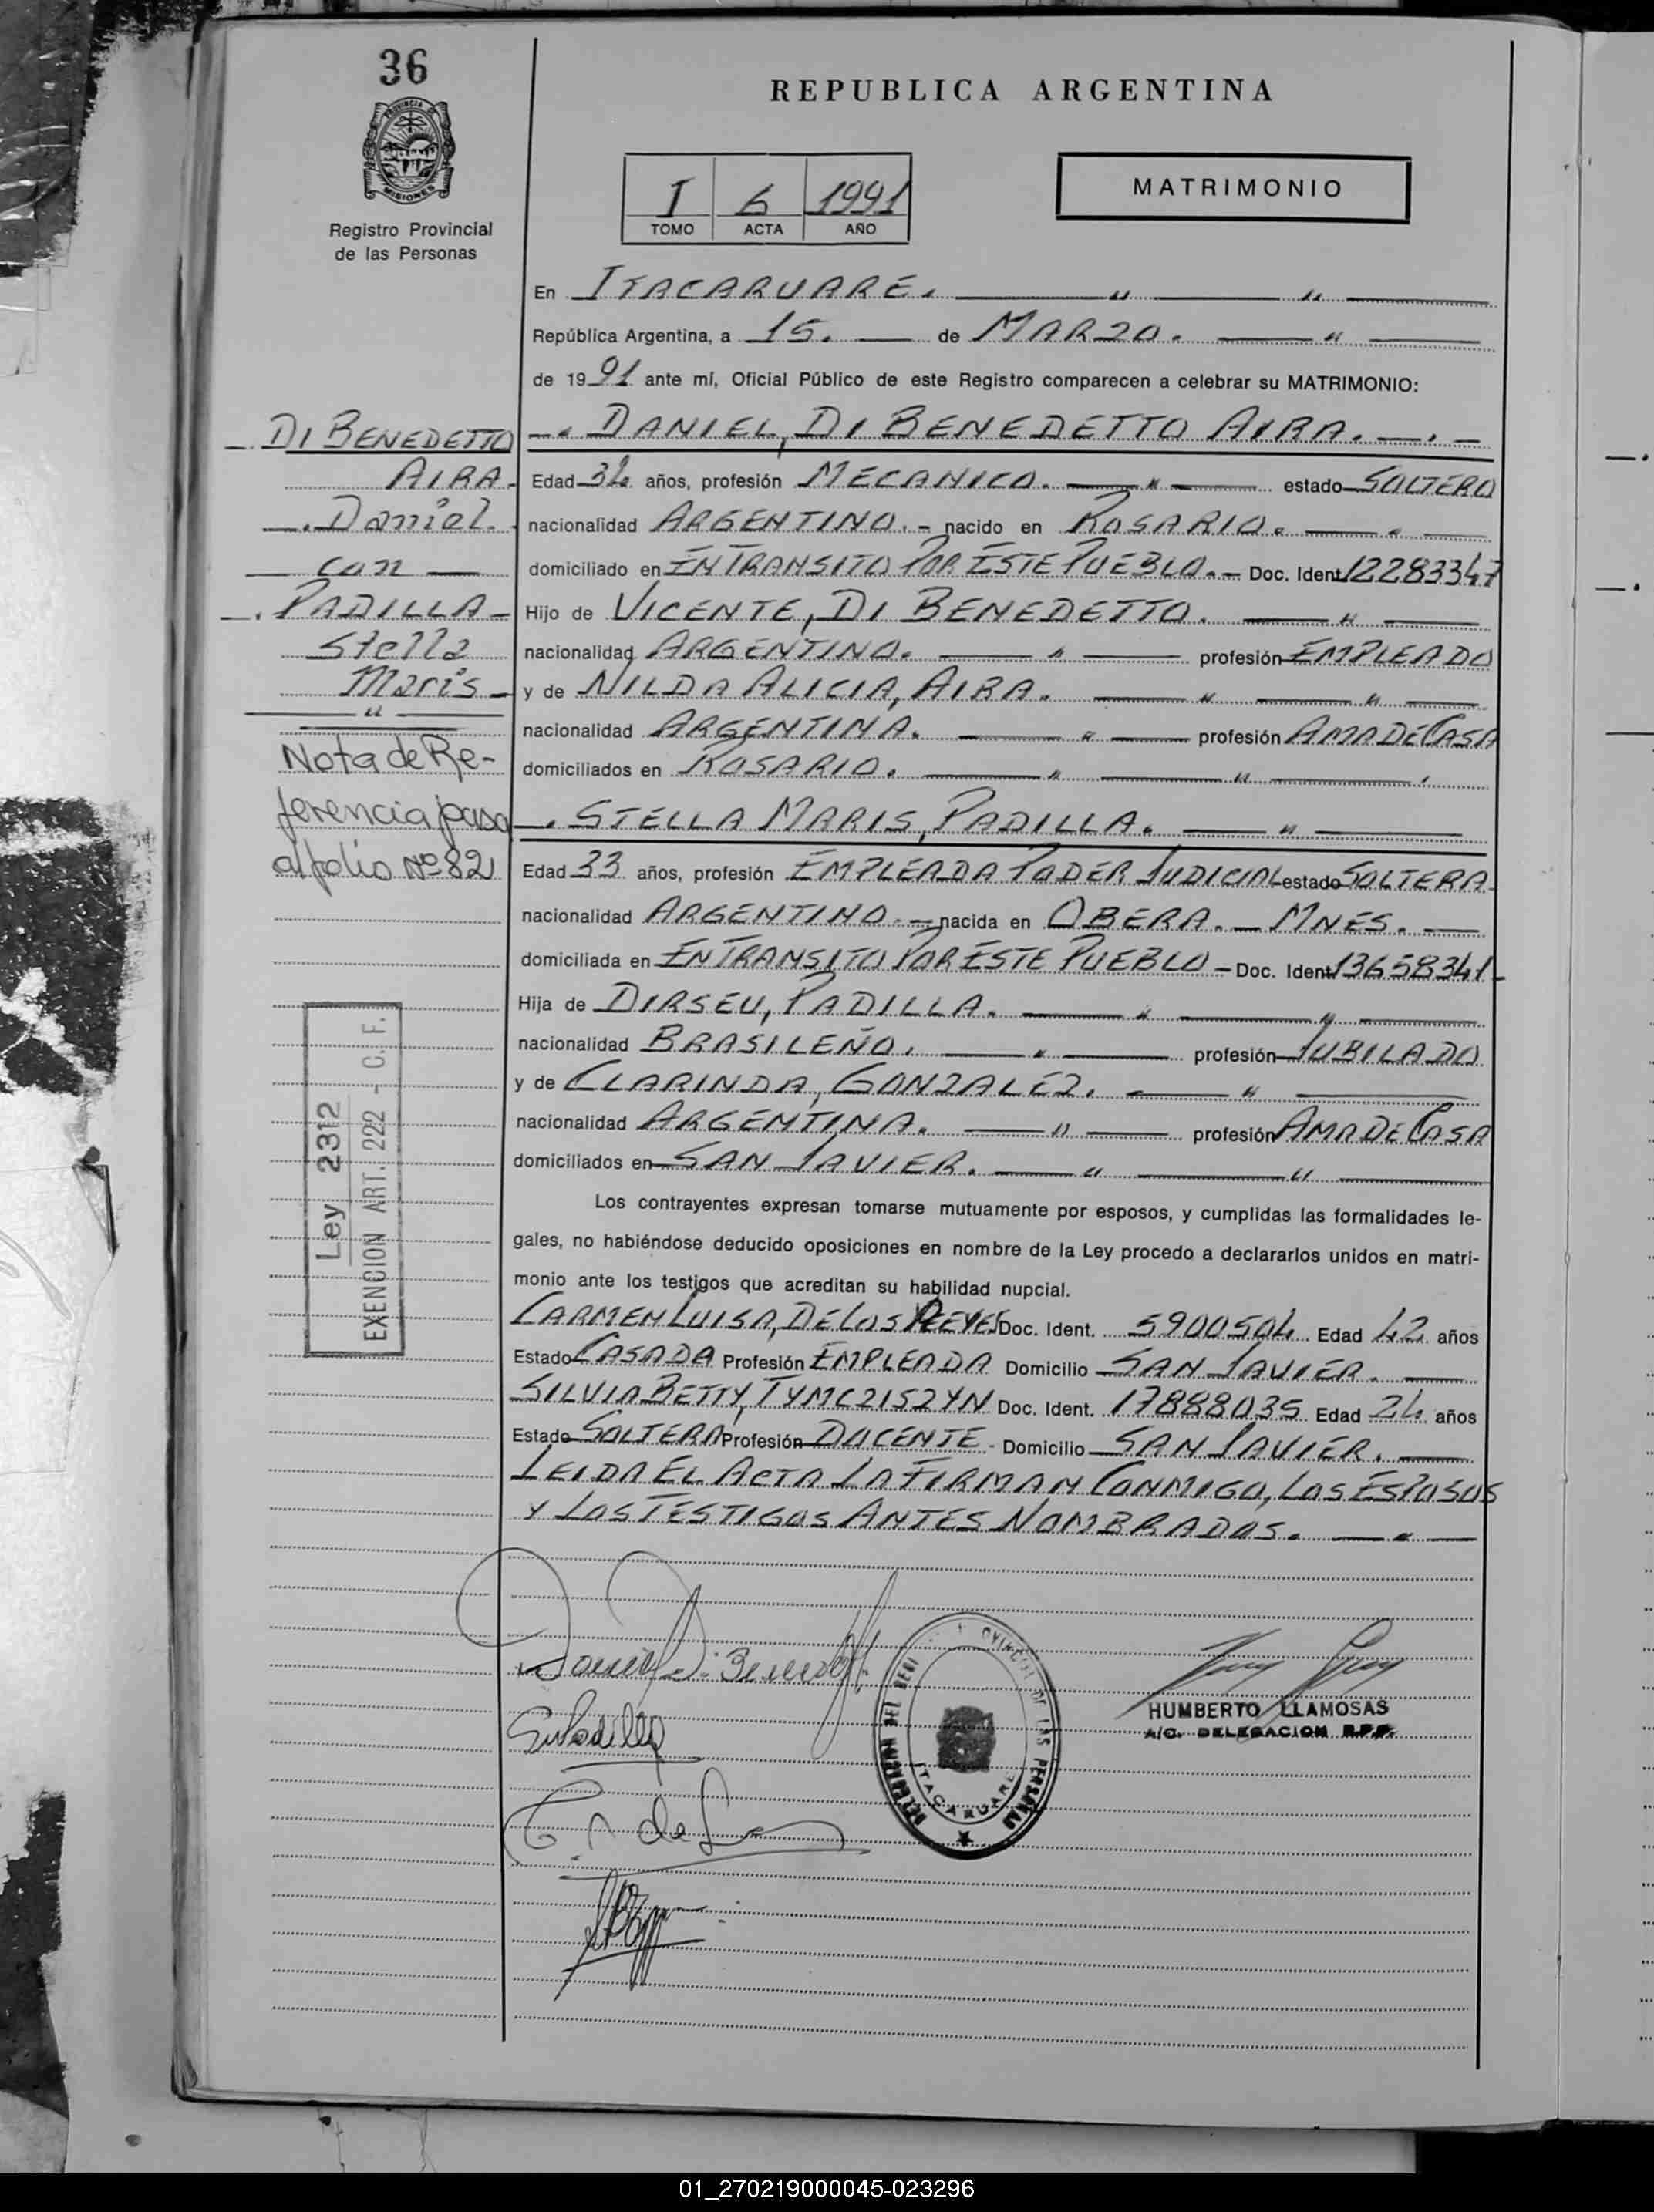 36
PROVINCIA
MISIONES
Registro Provincial
de las Personas
REPUBLICA ARGENTINA
I 6 1991
TOMO ACTA AÑO
MATRIMONIO
En ITACARUARE.
República Argentina, a 15. de MARZO.
de 1991 ante mí, Oficial Público de este Registro comparecen a celebrar su MATRIMONIO:
DANIEL, DI BENEDETTO AIRA.
Edad 34 años, profesión MECANICO. estado SOLTERO
nacionalidad ARGENTINO. nacido en ROSARIO.
domiciliado en EN TRANSITO POR ESTE PUEBLO. Doc. Ident. 12283347
Hijo de VICENTE, DI BENEDETTO.
nacionalidad ARGENTINO. profesión EMPLEADO
y de NILDA ALICIA, AIRA.
nacionalidad ARGENTINA. profesión AMA DE CASA
domiciliados en ROSARIO.
STELLA MARIS, PADILLA.
Edad 33 años, profesión EMPLEADA PODER JUDICIAL estado SOLTERA
nacionalidad ARGENTINO. nacida en OBERA. - MNES.
domiciliada en EN TRANSITO POR ESTE PUEBLO - Doc. Ident. 13658341
Hija de DIRSEU, PADILLA.
nacionalidad BRASILEÑO. profesión JUBILADO
y de CLARINDA, GONZALEZ.
nacionalidad ARGENTINA. profesión AMA DE CASA
domiciliados en SAN JAVIER.
Los contrayentes expresan tomarse mutuamente por esposos, y cumplidas las formalidades le-
gales, no habiéndose deducido oposiciones en nombre de la Ley procedo a declararlos unidos en matri-
monio ante los testigos que acreditan su habilidad nupcial.
CARMEN LUISA, DE LOS REYES Doc. Ident. 5900504 Edad 42 años
Estado CASADA Profesión EMPLEADA Domicilio SAN JAVIER.
SILVIA BETTY, TYMCZISZYN Doc. Ident. 17888035 Edad 24 años
Estado SOLTERA Profesión DOCENTE - Domicilio SAN JAVIER.
LEIDA EL ACTA LA FIRMAN CONMIGO, LOS ESPOSOS
Y LOS TESTIGOS ANTES NOMBRADOS.
DI BENEDETTO
AIRA
Daniel
con
PADILLA
Stella
Maris
Nota de Re-
ferencia pasa
al folio Nº 82
Ley 2312
EXENCION ART. 222 - C. F.
Daniel Di Benedetto
S M Padilla
HUMBERTO LLAMOSAS
A/C. DELEGACION R.P.P.
DELEGACION DEL REGISTRO PROVINCIAL DE LAS PERSONAS
ITACARUARE
01_270219000045-023296